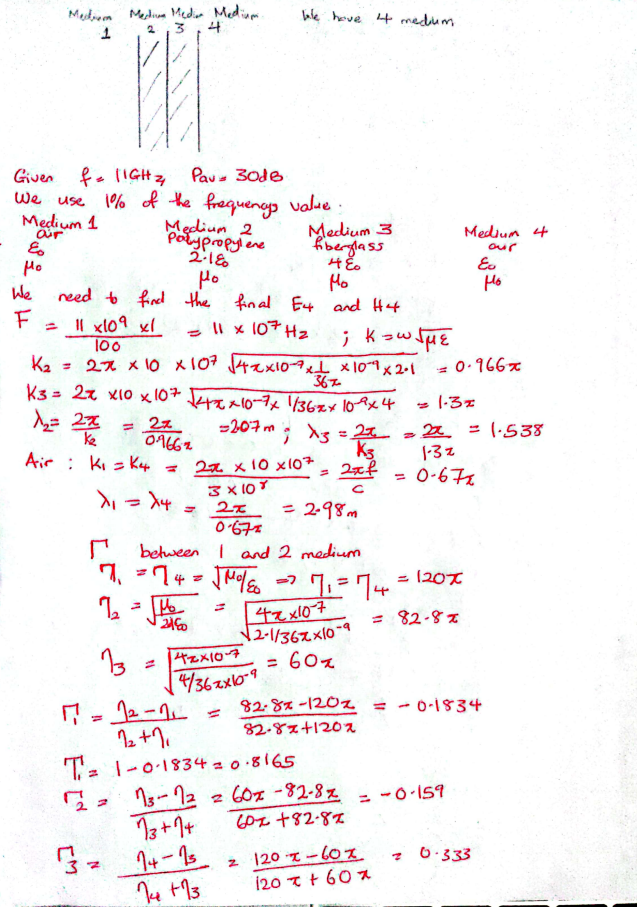 Medium Medium Medium Medium We have 4 medium
1 2 3 4
Given f = 11GHz, Pav = 30dB
We use 1% of the frequency value.
Medium 1 Medium 2 Medium 3 Medium 4
air Polypropylene fiberglass air
ε₀ 2.1ε₀ 4ε₀ ε₀
μ₀ μ₀ μ₀ μ₀
We need to find the final E4 and H4
F = 11 x10⁹ x1 / 100 = 11 x 10⁷ Hz ; K = ω√με
K2 = 2π x 10 x 10⁷ √4π x10⁻⁷ x 1/36π x 10⁻⁹ x 2.1 = 0.966π
K3 = 2π x10 x 10⁷ √4π x 10⁻⁷ x 1/36π x 10⁻⁹ x 4 = 1.3π
λ2 = 2π/K2 = 2π/0.966π = 207m ; λ3 = 2π/K3 = 2π/1.3π = 1.538
Air : K1 = K4 = 2π x 10 x10⁷ / 3 x 10⁸ = 2πf/c = 0.67π
λ1 = λ4 = 2π/0.67π = 2.98m
Γ between 1 and 2 medium
η1 = η4 = √μ₀/ε₀ => η1 = η4 = 120π
η2 = √μ₀/2.1ε₀ = √4π x10⁻⁷ / 2.1/36π x10⁻⁹ = 82.8π
η3 = √4π x10⁻⁷ / 4/36π x10⁻⁹ = 60π
Γ1 = η2 - η1 / η2 + η1 = 82.8π - 120π / 82.8π + 120π = - 0.1834
T1 = 1 - 0.1834 = 0.8165
Γ2 = η3 - η2 / η3 + η4 = 60π - 82.8π / 60π + 82.8π = - 0.159
Γ3 = η4 - η3 / η4 + η3 = 120π - 60π / 120π + 60π = 0.333